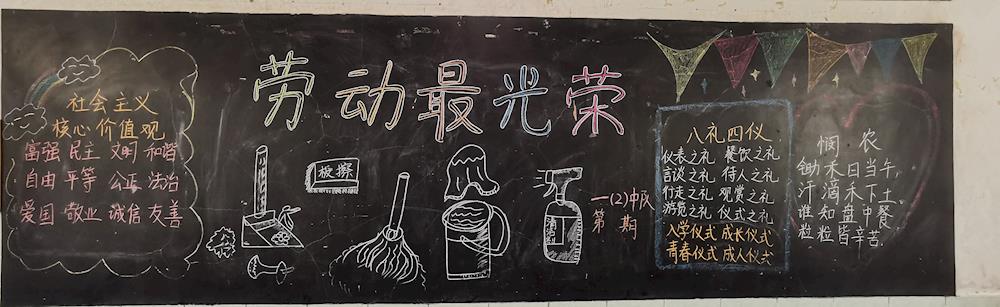 劳动最光荣
社会主义
核心价值观
富强 民主 文明 和谐
自由 平等 公正 法治
爱国 敬业 诚信 友善
板擦
消毒
一(2)中队
第 期
八礼四仪
仪表之礼 餐饮之礼
言谈之礼 待人之礼
行走之礼 观赏之礼
游览之礼 仪式之礼
入学仪式 成长仪式
青春仪式 成人仪式
悯 农
锄禾日当午,
汗滴禾下土。
谁知盘中餐
粒粒皆辛苦.